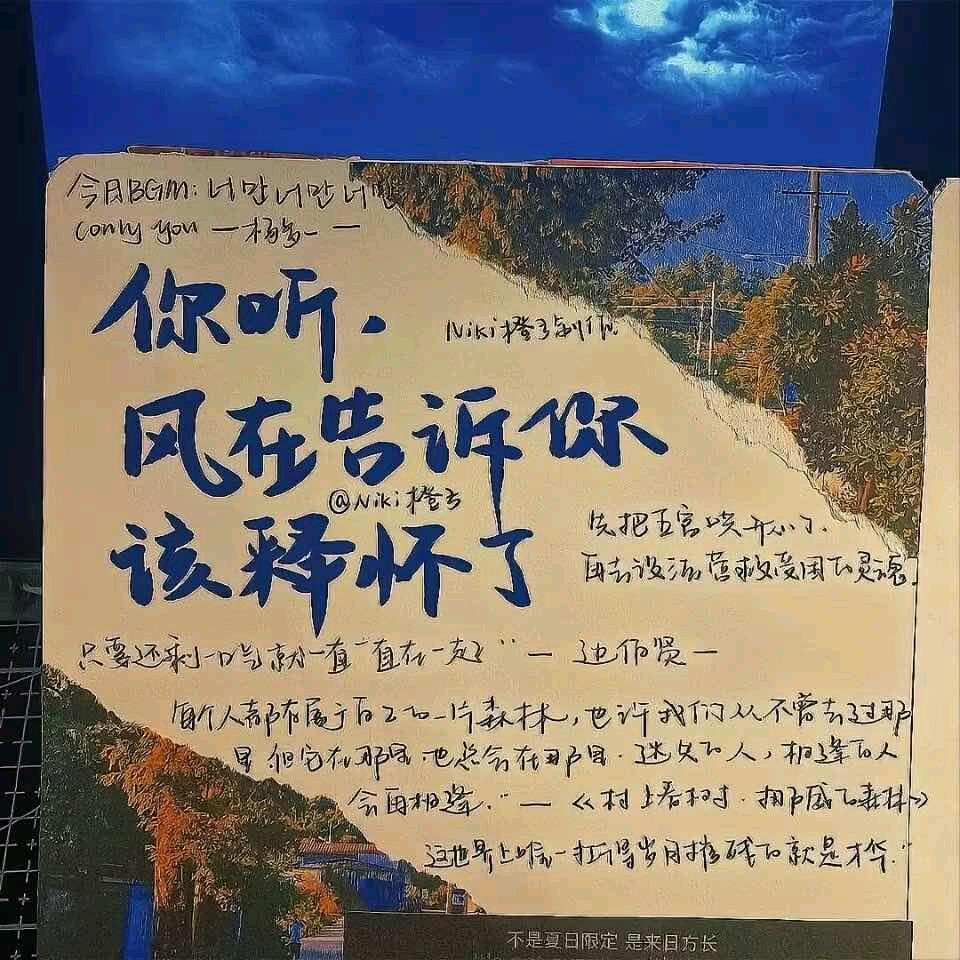 今日BGM: 너만 너만 너만
(only you — 杨多一 —
你听,
Niki橙子制作
风在告诉你
@Niki橙子
该释怀了
先把五官哄开心了,
再去设法营救受困的灵魂.
只要还剩一口气就一直一直在一起”— 边伯贤 —
每个人都有属于自己的一片森林,也许我们从不曾去过那
里 但它在那里.也总会在那里.迷失的人,相逢的人
会再相逢.”—《村上春树.挪威的森林》
这世界上唯一扛得岁月摧残的就是才华.”
不是夏日限定 是来日方长